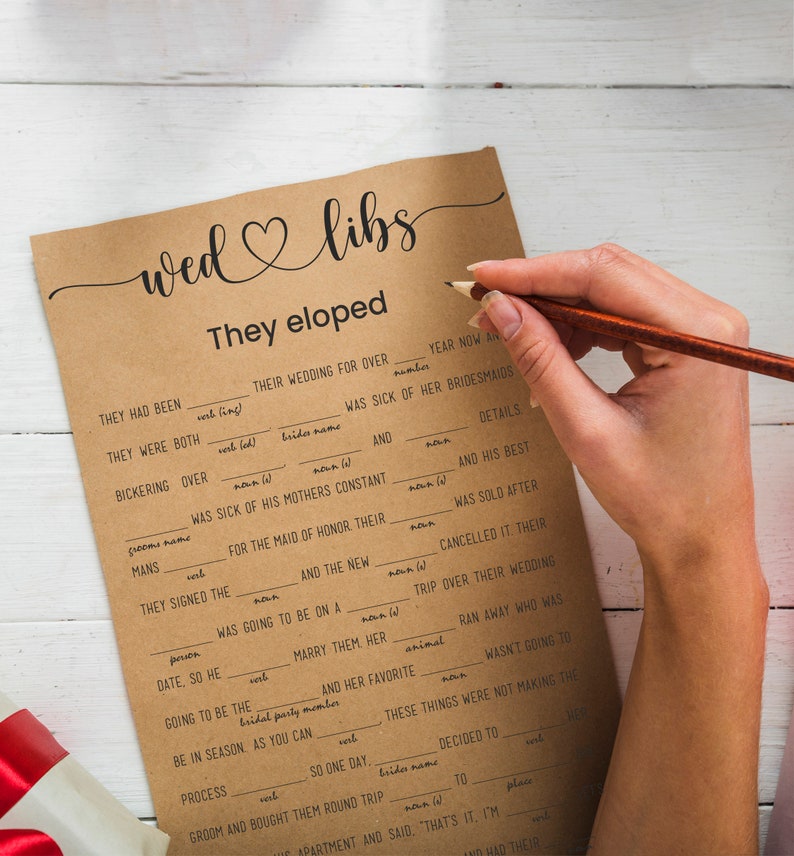 wed libs
They eloped
THEY HAD BEEN ____ THEIR WEDDING FOR OVER ____ YEAR NOW AN
verb (ing) number
THEY WERE BOTH ____. ____ WAS SICK OF HER BRIDESMAIDS
verb (ed) brides name
BICKERING OVER ____, ____ AND ____ DETAILS.
noun (s) noun (s) noun
____ WAS SICK OF HIS MOTHERS CONSTANT ____ AND HIS BEST
grooms name noun (s)
MANS ____ FOR THE MAID OF HONOR. THEIR ____ WAS SOLD AFTER
verb noun
THEY SIGNED THE ____ AND THE NEW ____ CANCELLED IT. THEIR
noun noun (s)
____ WAS GOING TO BE ON A ____ TRIP OVER THEIR WEDDING
person noun (s)
DATE, SO HE ____ MARRY THEM. HER ____ RAN AWAY WHO WAS
verb animal
GOING TO BE THE ____ AND HER FAVORITE ____ WASN'T GOING TO
bridal party member noun
BE IN SEASON. AS YOU CAN ____, THESE THINGS WERE NOT MAKING THE
verb
PROCESS ____, SO ONE DAY, ____ DECIDED TO ____ HER
verb brides name verb
GROOM AND BOUGHT THEM ROUND TRIP ____ TO ____
noun (s) place
APARTMENT AND SAID, "THAT'S IT, I'M ____
verb
AND HAD THEIR